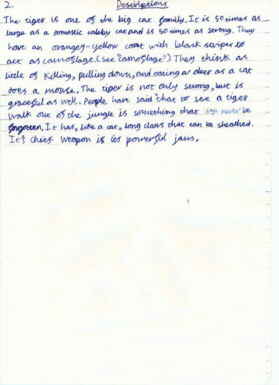 2. Descriptions
The tiger is one of the big cat family. It is 50 times as
large as a domestic tabby cat and is 50 times as strong. They
have an orangey-yellow coat with black stripes to
act as camoflage. (see "Camoflage") They think as
little of killing, pulling down, and eating a deer as a cat
does a mouse. The tiger is not only strong, but is
graceful as well. People have said that to see a tiger
walk out of the jungle is something that will never be
forgotten. It has, like a cat, long claws that can be sheathed.
It's chief weapon is its powerful jaws.